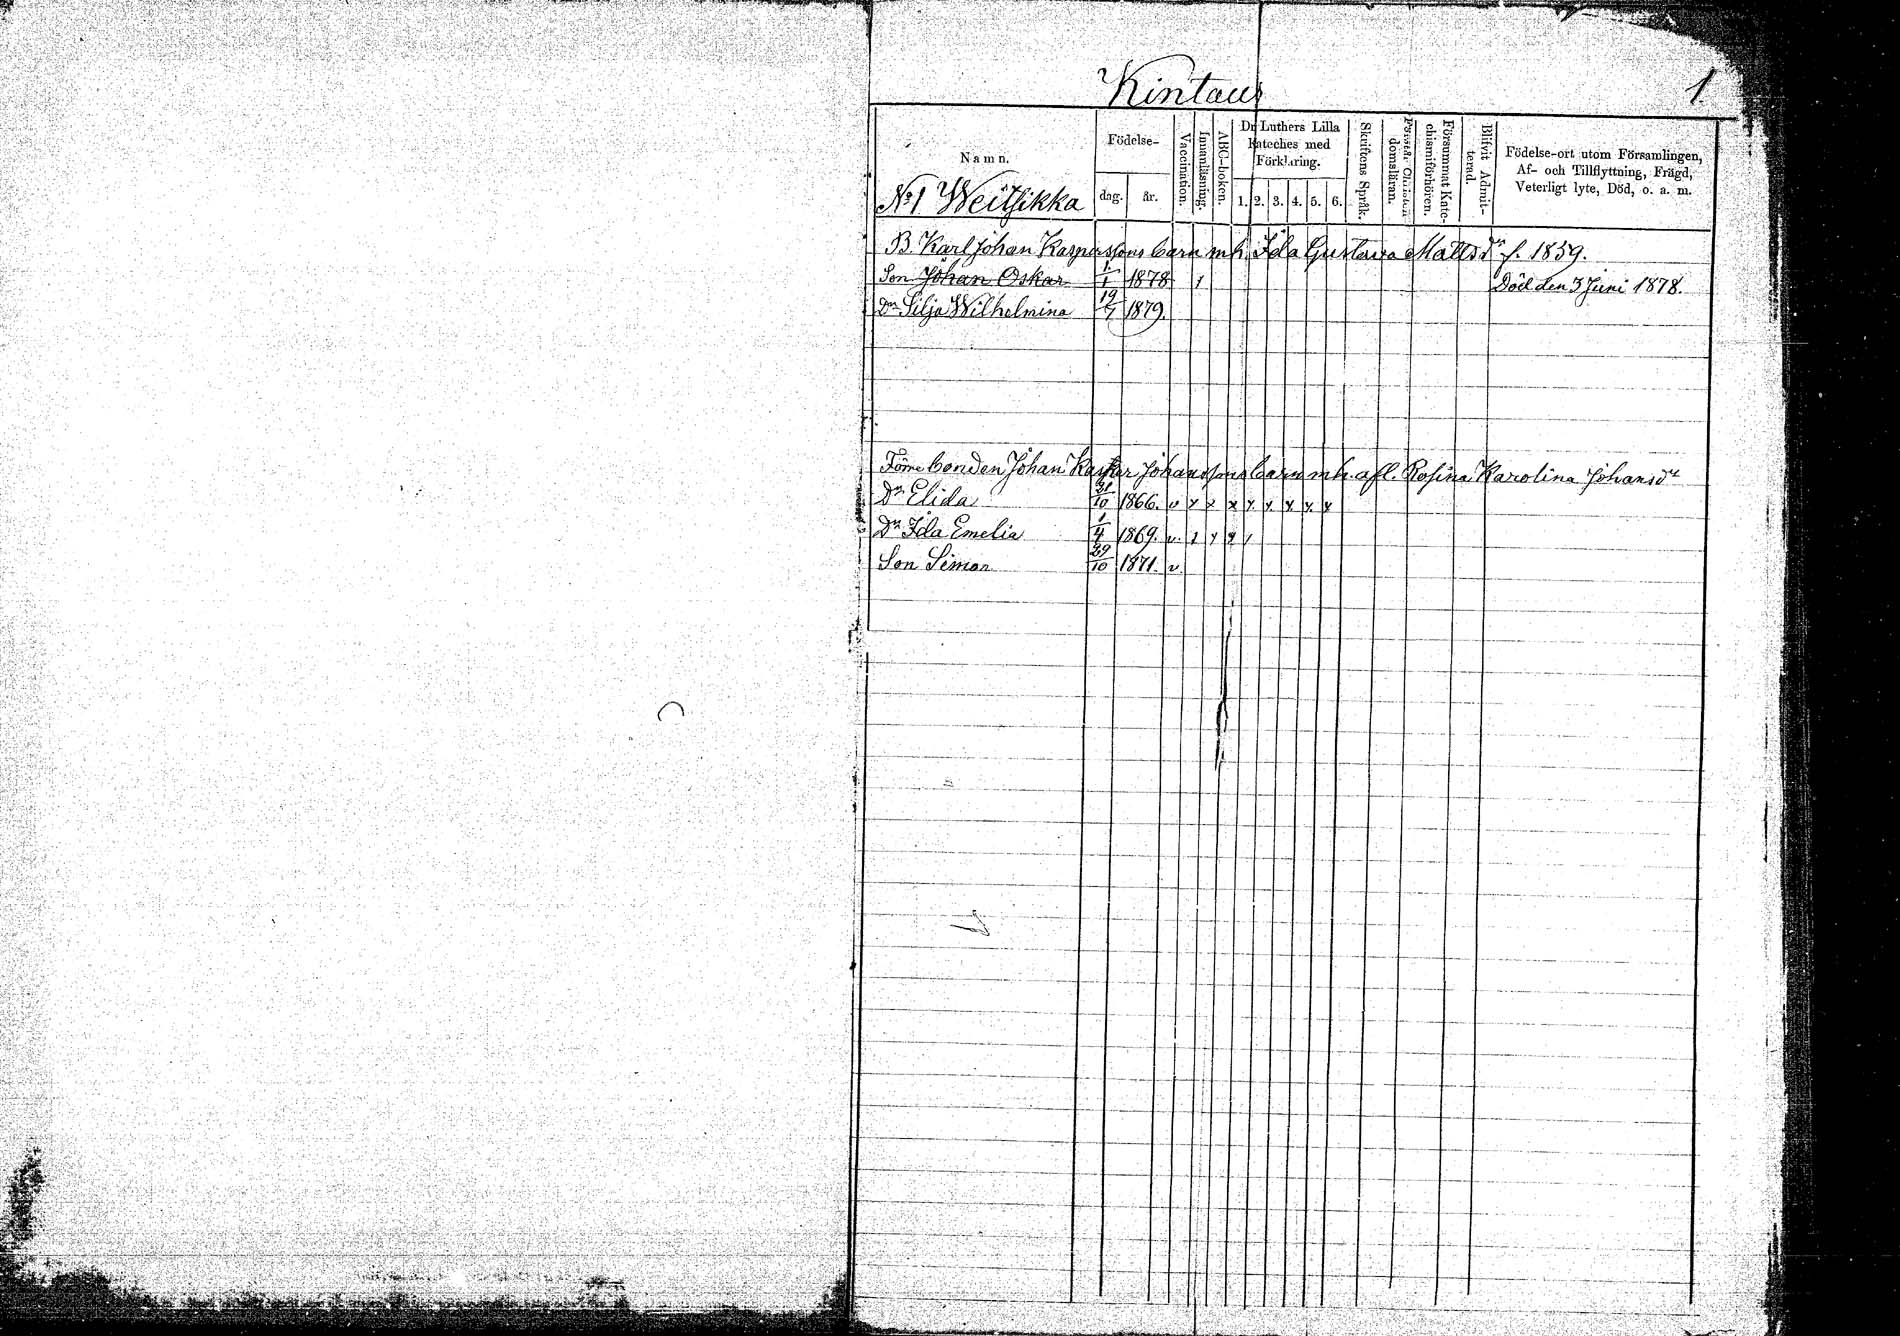 Kintaus
1.
Namn.
Födelse-
dag.
år.
Vaccination.
Innanläsning.
ABC-boken.
Dr Luthers Lilla
Kateches med
Förklaring.
1. 2. 3. 4. 5. 6.
Skriftens Språk.
domsläran.
Försummat Kate-
chismiförhören.
Blifvit Admit-
terad.
Födelse-ort utom Församlingen,
Af- och Tillflyttning, Frägd,
Veterligt lyte, Död, o. a. m.
No 1 Weitsikka
B. Karl Johan Kasperssons barn m.h. Ida Gustava Mattsdr f. 1859.
Son Johan Oskar 1/1 1878 1 Död den 3 Juni 1878.
Dr Silja Wilhelmina 19/7 1879.
Förre bonden Johan Kasper Johanssons barn m.h. afl. Rosina Karolina Johansdr
Dr Elida 31/10 1866. v x x x x x x x x
Dr Ida Emelia 1/4 1869. v. 1
Son Simon 29/10 1871. v.